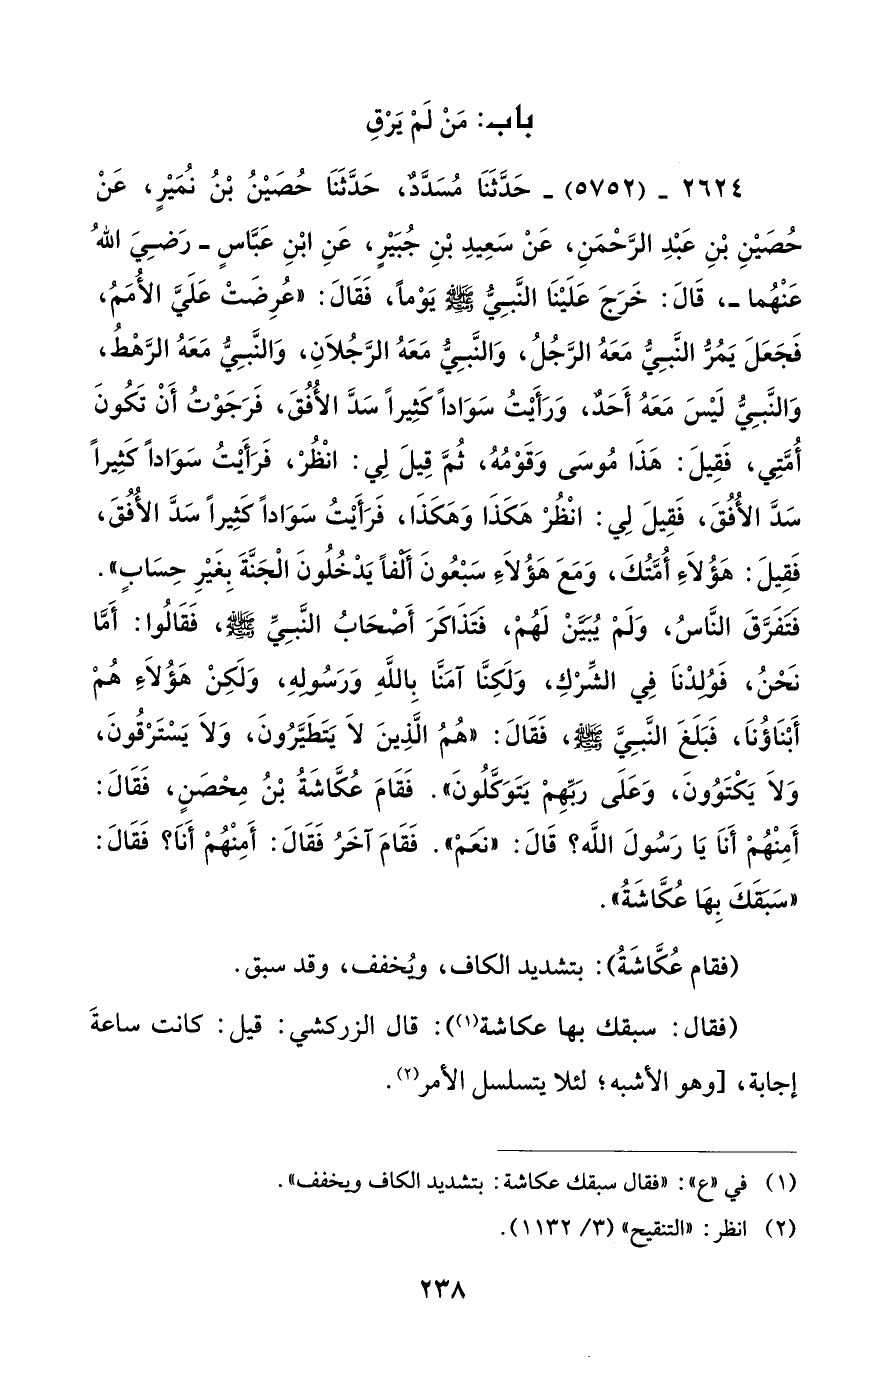 باب: مَنْ لَمْ يَرْقِ
٢٦٢٤ ـ (٥٧٥٢) ـ حَدَّثَنَا مُسَدَّدٌ، حَدَّثَنَا حُصَيْنُ بْنُ نُمَيْرٍ، عَنْ
حُصَيْنِ بْنِ عَبْدِ الرَّحْمَنِ، عَنْ سَعِيدِ بْنِ جُبَيْرٍ، عَنِ ابْنِ عَبَّاسٍ ـ رَضيَ اللهُ
عَنْهُما ـ، قَالَ: خَرَجَ عَلَيْنَا النَّبِيُّ ﷺ يَوْماً، فَقَالَ: «عُرِضَتْ عَلَيَّ الأُمَمُ،
فَجَعَلَ يَمُرُّ النَّبِيُّ مَعَهُ الرَّجُلُ، وَالنَّبِيُّ مَعَهُ الرَّجُلاَنِ، وَالنَّبِيُّ مَعَهُ الرَّهْطُ،
وَالنَّبِيُّ لَيْسَ مَعَهُ أَحَدٌ، وَرَأَيْتُ سَوَاداً كَثِيراً سَدَّ الأُفُقَ، فَرَجَوْتُ أَنْ تَكُونَ
أُمَّتِي، فَقِيلَ: هَذَا مُوسَى وَقَوْمُهُ، ثُمَّ قِيلَ لِي: انْظُرْ، فَرَأَيْتُ سَوَاداً كَثِيراً
سَدَّ الأُفُقَ، فَقِيلَ لِي: انْظُرْ هَكَذَا وَهَكَذَا، فَرَأَيْتُ سَوَاداً كَثِيراً سَدَّ الأُفُقَ،
فَقِيلَ: هَؤُلاَءِ أُمَّتُكَ، وَمَعَ هَؤُلاَءِ سَبْعُونَ أَلْفاً يَدْخُلُونَ الْجَنَّةَ بِغَيْرِ حِسَابٍ».
فَتَفَرَّقَ النَّاسُ، وَلَمْ يُبَيَّنْ لَهُمْ، فَتَذَاكَرَ أَصْحَابُ النَّبِيِّ ﷺ، فَقَالُوا: أَمَّا
نَحْنُ، فَوُلِدْنَا فِي الشِّرْكِ، وَلَكِنَّا آمَنَّا بِاللَّهِ وَرَسُولِهِ، وَلَكِنْ هَؤُلاَءِ هُمْ
أَبْنَاؤُنَا، فَبَلَغَ النَّبِيَّ ﷺ، فَقَالَ: «هُمُ الَّذِينَ لاَ يَتَطَيَّرُونَ، وَلاَ يَسْتَرْقُونَ،
وَلاَ يَكْتَوُونَ، وَعَلَى رَبِّهِمْ يَتَوَكَّلُونَ». فَقَامَ عُكَّاشَةُ بْنُ مِحْصَنٍ، فَقَالَ:
أَمِنْهُمْ أَنَا يَا رَسُولَ اللَّه؟ قَالَ: «نَعَمْ». فَقَامَ آخَرُ فَقَالَ: أَمِنْهُمْ أَنَا؟ فَقَالَ:
«سَبَقَكَ بِهَا عُكَّاشَةُ».
(فقام عُكَّاشَةُ): بتشديد الكاف، ويُخفف، وقد سبق.
(فقال: سبقك بها عكاشة(١)): قال الزركشي: قيل: كانت ساعةَ
إجابة، [وهو الأشبه؛ لئلا يتسلسل الأمر(٢).
(١) في «ع»: «فقال سبقك عكاشة: بتشديد الكاف ويخفف».
(٢) انظر: «التنقيح» (٣/ ١١٣٢).
٢٣٨